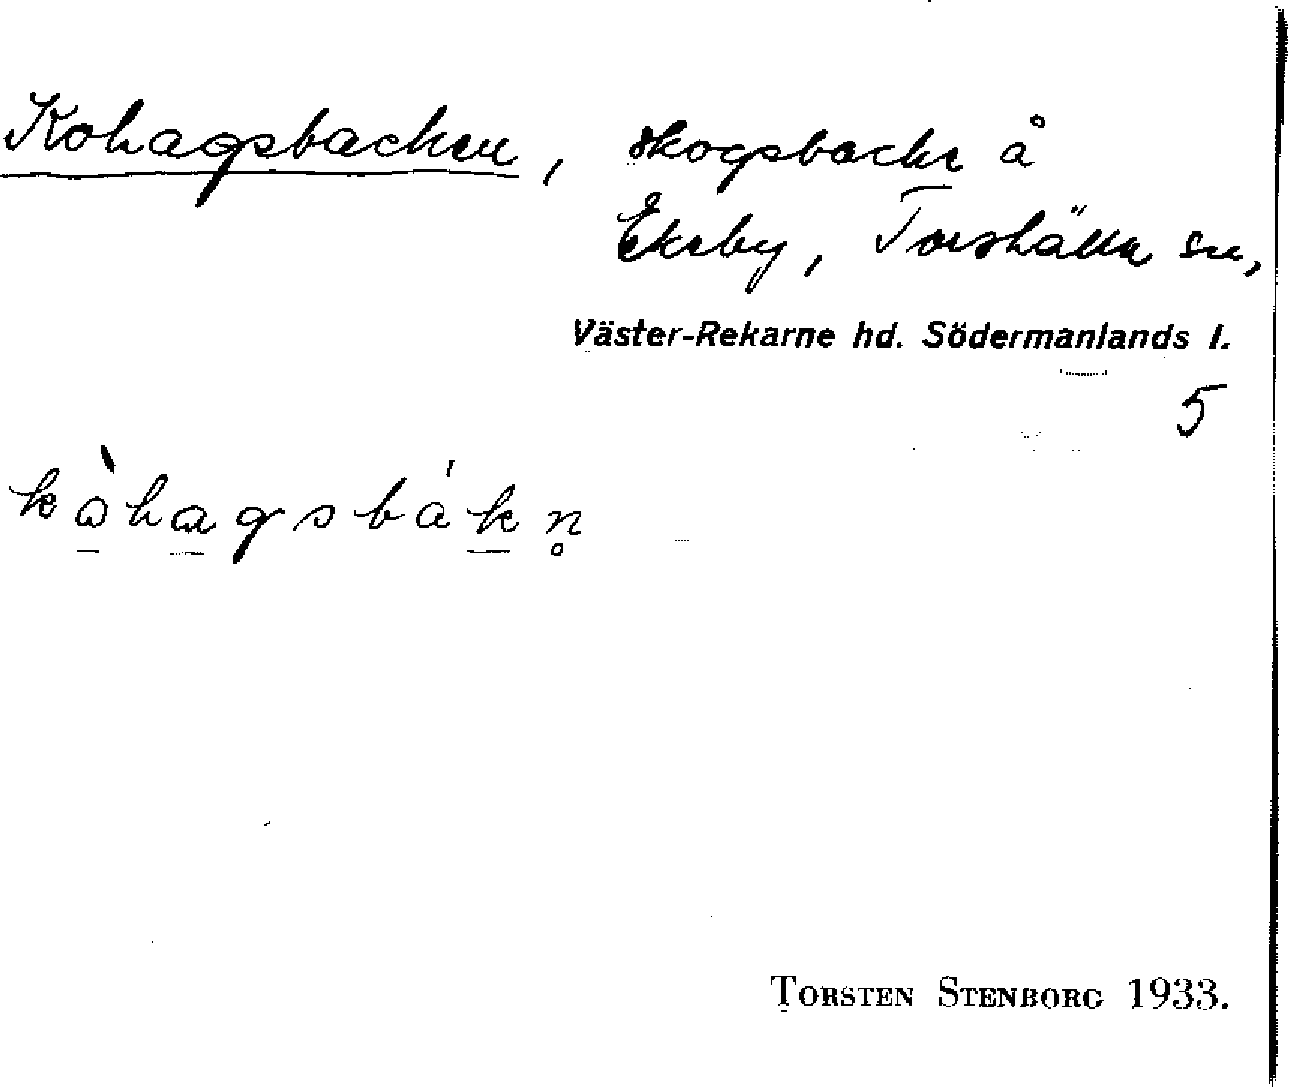 Kohagsbacken, skogsbacke å
Ekeby, Torshälla sn,
Väster-Rekarne hd. Södermanlands l.
5
kȯ̀hagsbákn̥
TORSTEN STENBORG 1933.